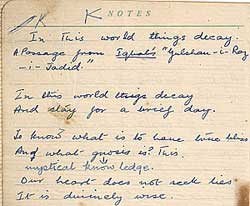 K K
NOTES
In This world things decay.
A Passage from Iqbal's "Gulshan-i-Raz
-i-Jadid."
In this world things decay
And stay for a brief day.
To know what is to have true bliss
And what gnosis is? This
mystical knowledge.
Our heart does not seek lies
It is divinely wise.